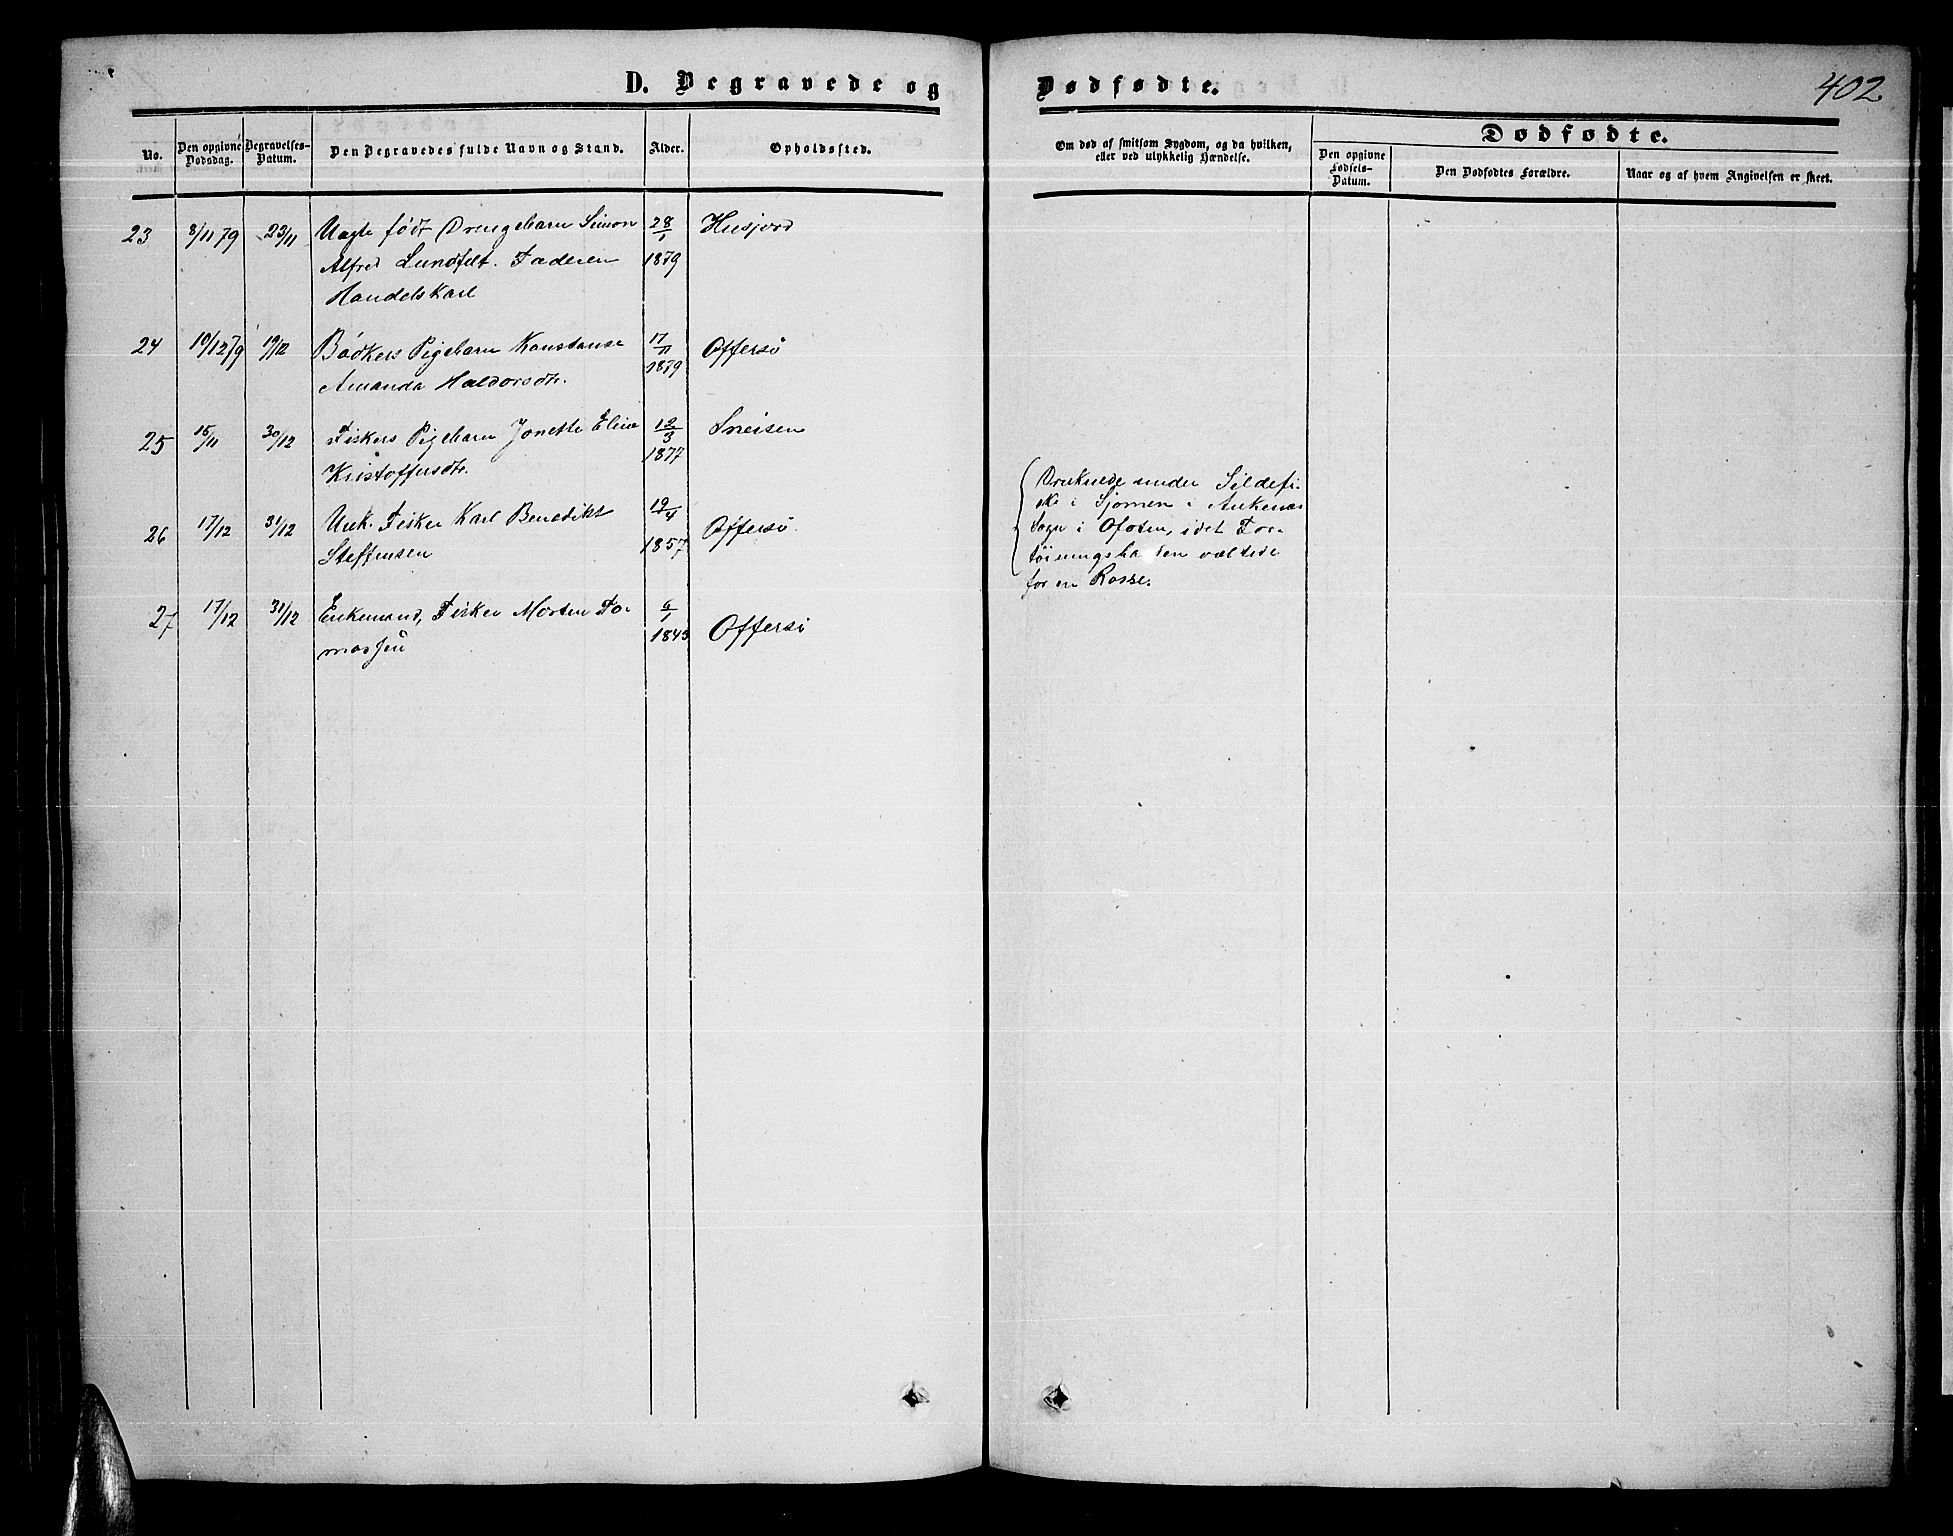 D. Begravede og Dødfødte. 402
No. Den opgivne Dødsdag. Begravelses-Datum. Den Begravedes fulde Navn og Stand. Alder. Opholdssted.
Om død af smitsom Sygdom, og da hvilken, eller ved ulykkelig Hændelse.
Dødfødte.
Den opgivne Fødsels-Datum. Den Dødfødtes Forældre. Naar og af hvem Angivelsen er skeet.
23 8/11 79 23/11 Uægte født Drengebarn Simon 28/1 Husjord
Alfred Lundfelt. Faderen 1879
Handelskarl
24 10/12 79 19/12 Bødkers Pigebarn Konstanse 17/11 Offersø
Amanda Haldorsdtr. 1879
25 15/11 30/12 Fiskers Pigebarn Jonette Eline 12/3 Sneisen
Kristoffersdtr. 1877
26 17/12 31/12 Unk. Fisker Karl Benedikt 19/4 Offersø.
Steffensen 1857
27 17/12 31/12 Enkemand, Fisker Morten To- 6/1 Offersø
massen 1843
Druknede under Sildefi-
ske i Sjomen i Ankenæs
Sogn i Ofoten, idet For-
tøiningsbaaden væltede
for en Rosse.